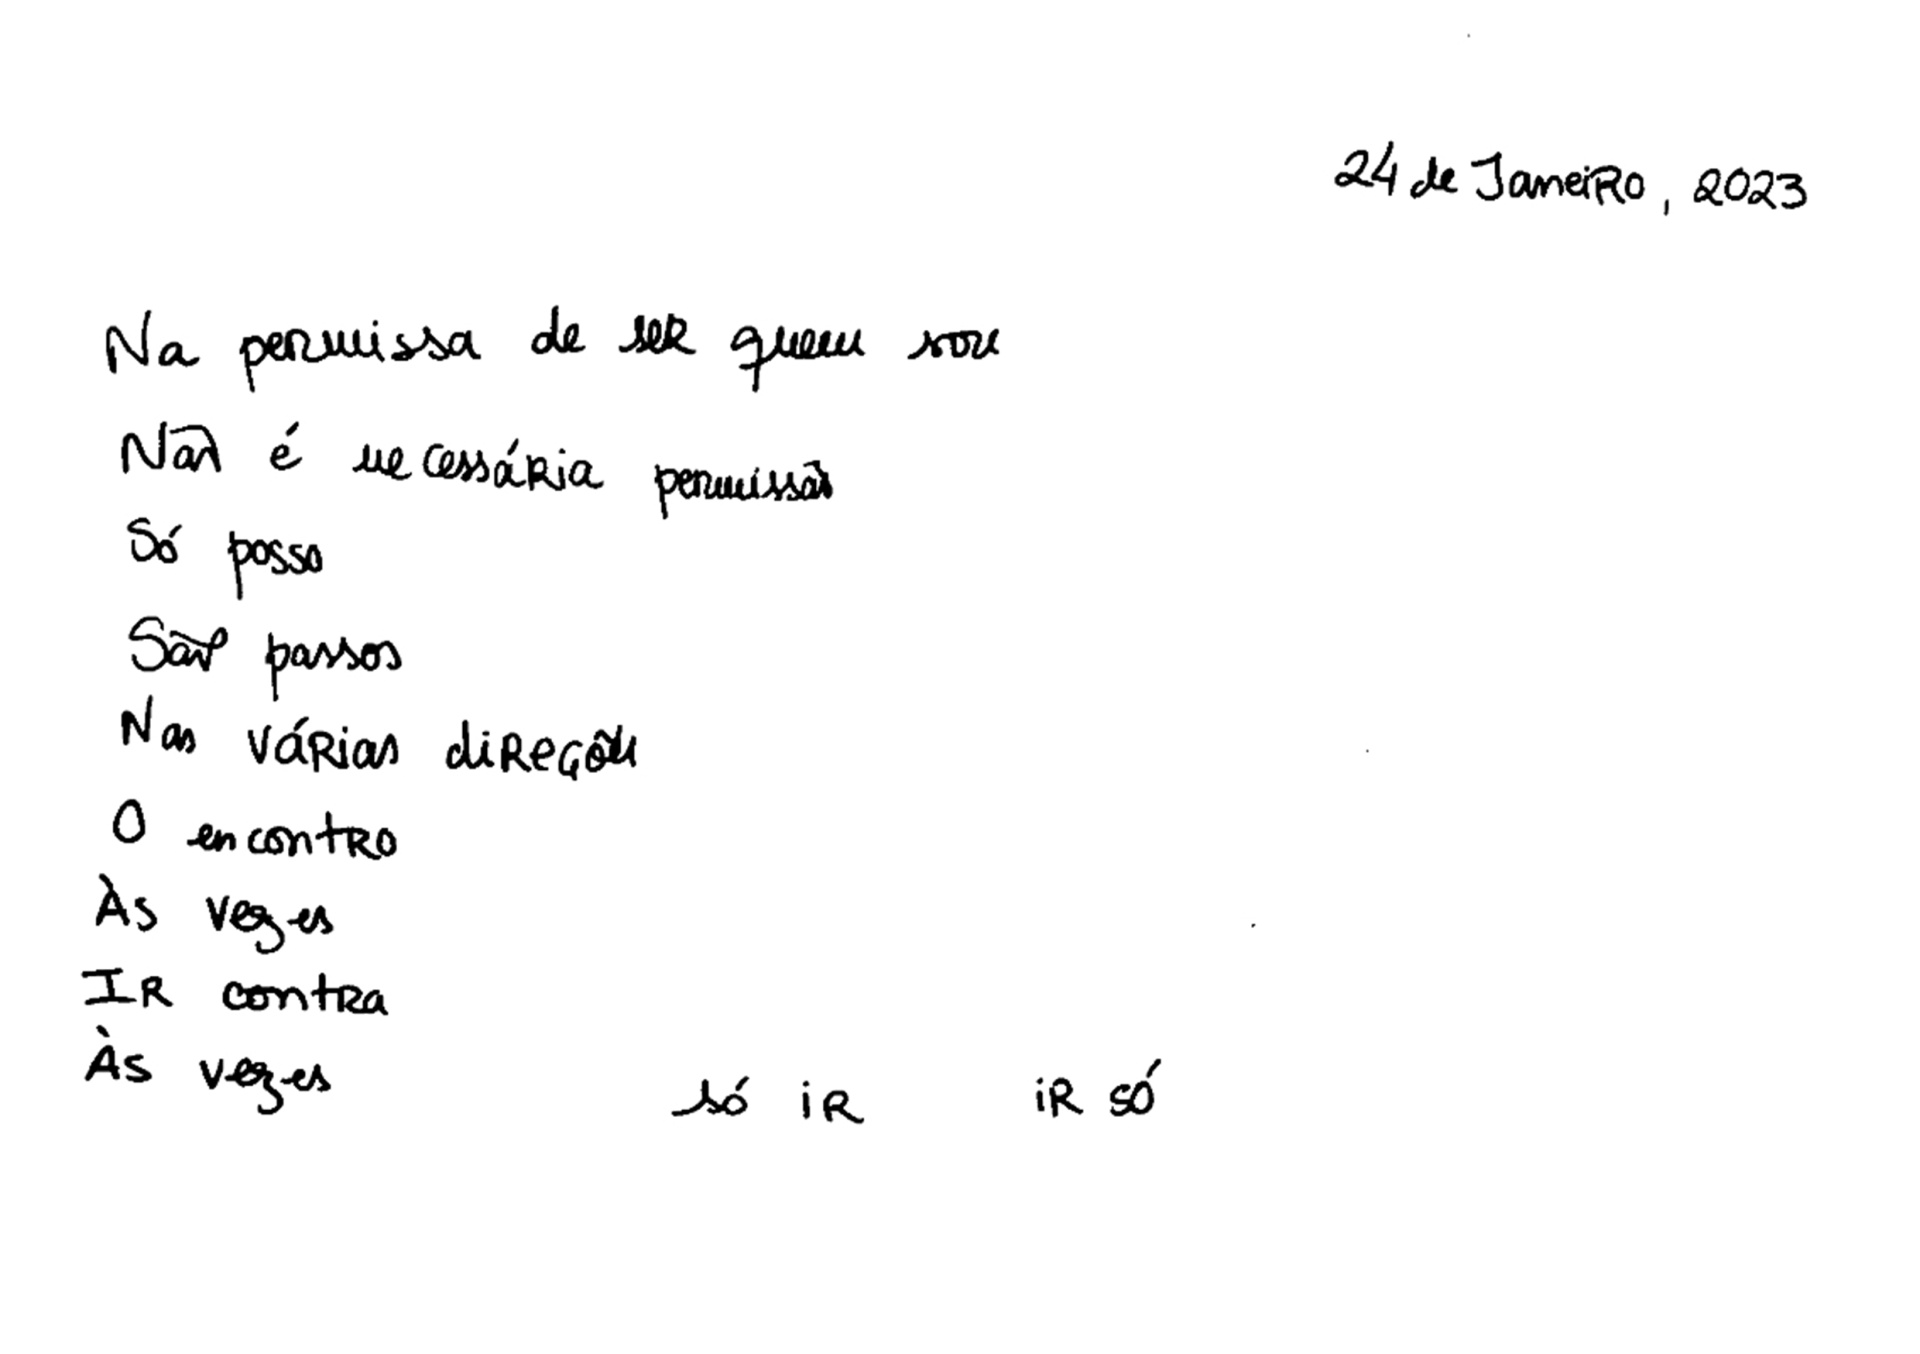 24 de Janeiro, 2023
Na permissa de ser quem sou
Não é necessária permissão
Só posso
São passos
Nas várias direções
O encontro
Às vezes
Ir contra
Às vezes só ir ir só